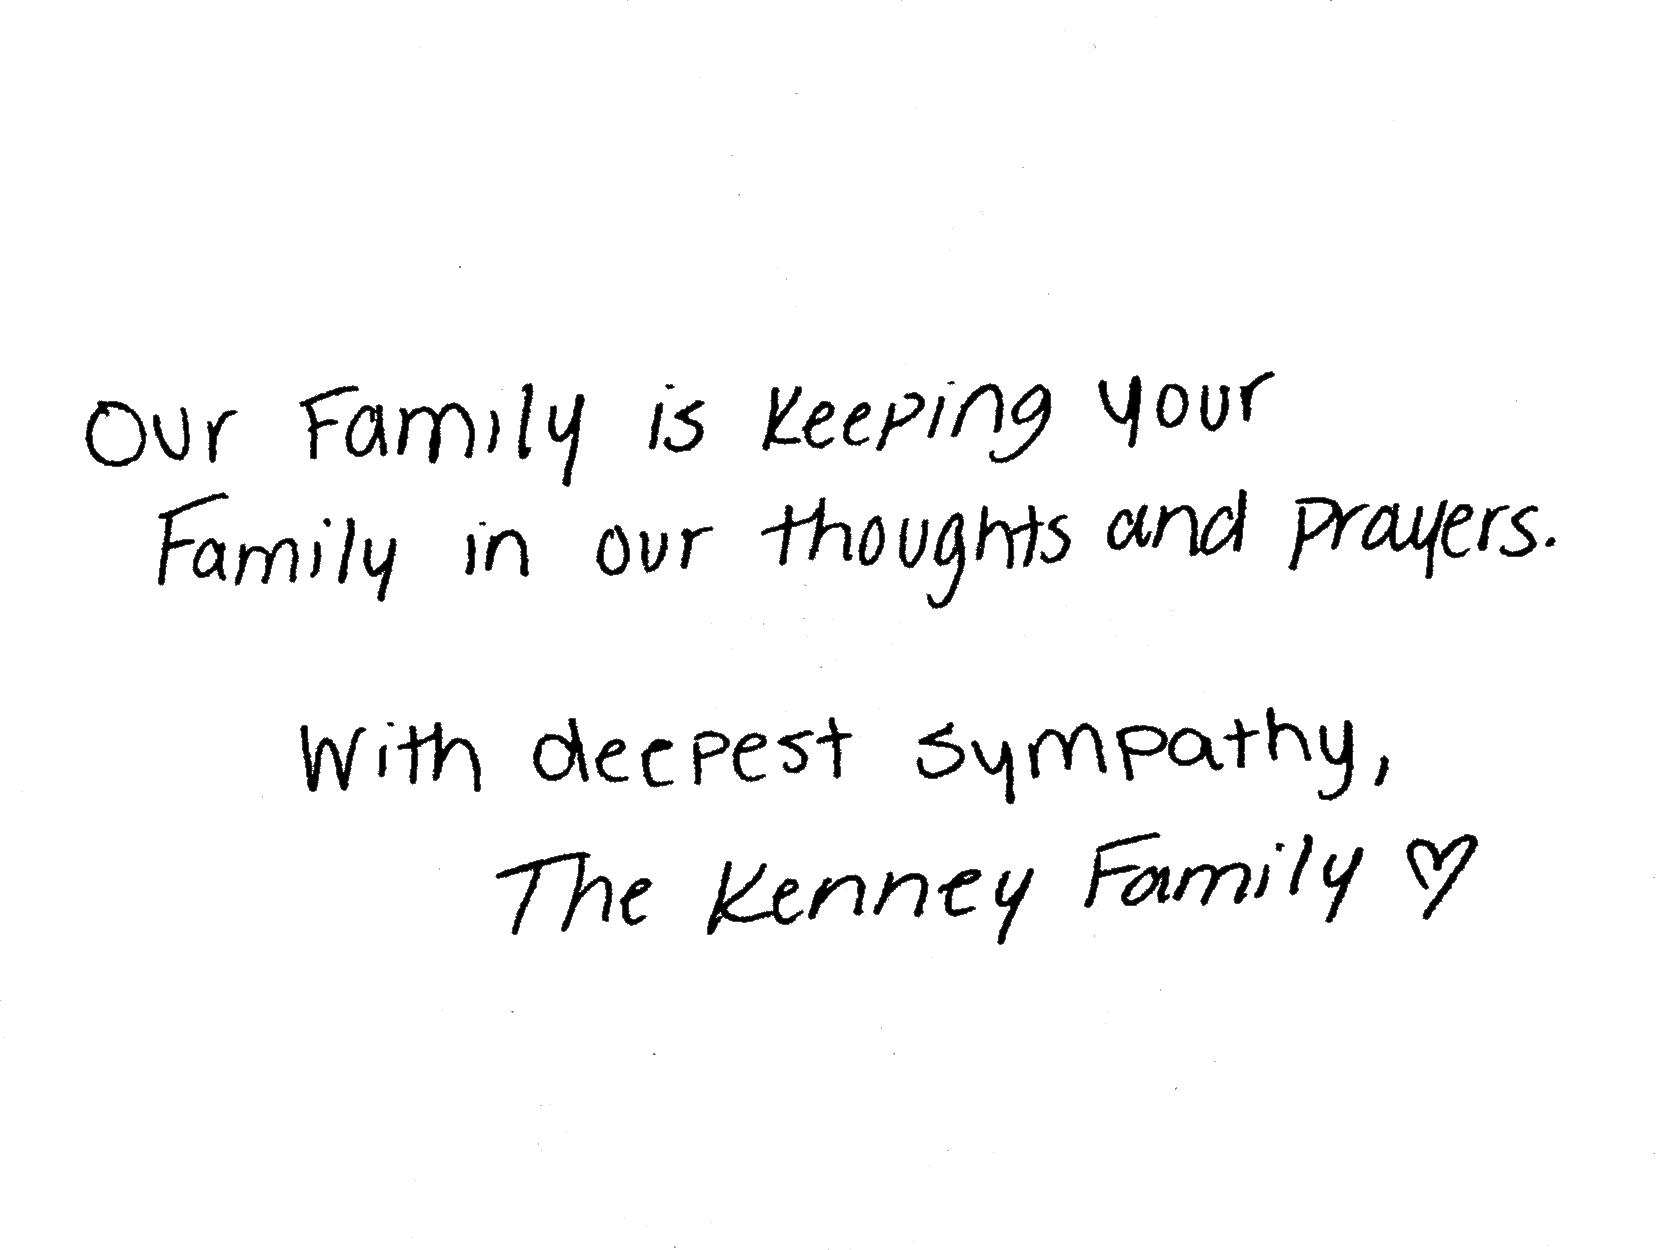 Our Family is keeping your
Family in our thoughts and prayers.
With deepest sympathy,
The Kenney Family ♡